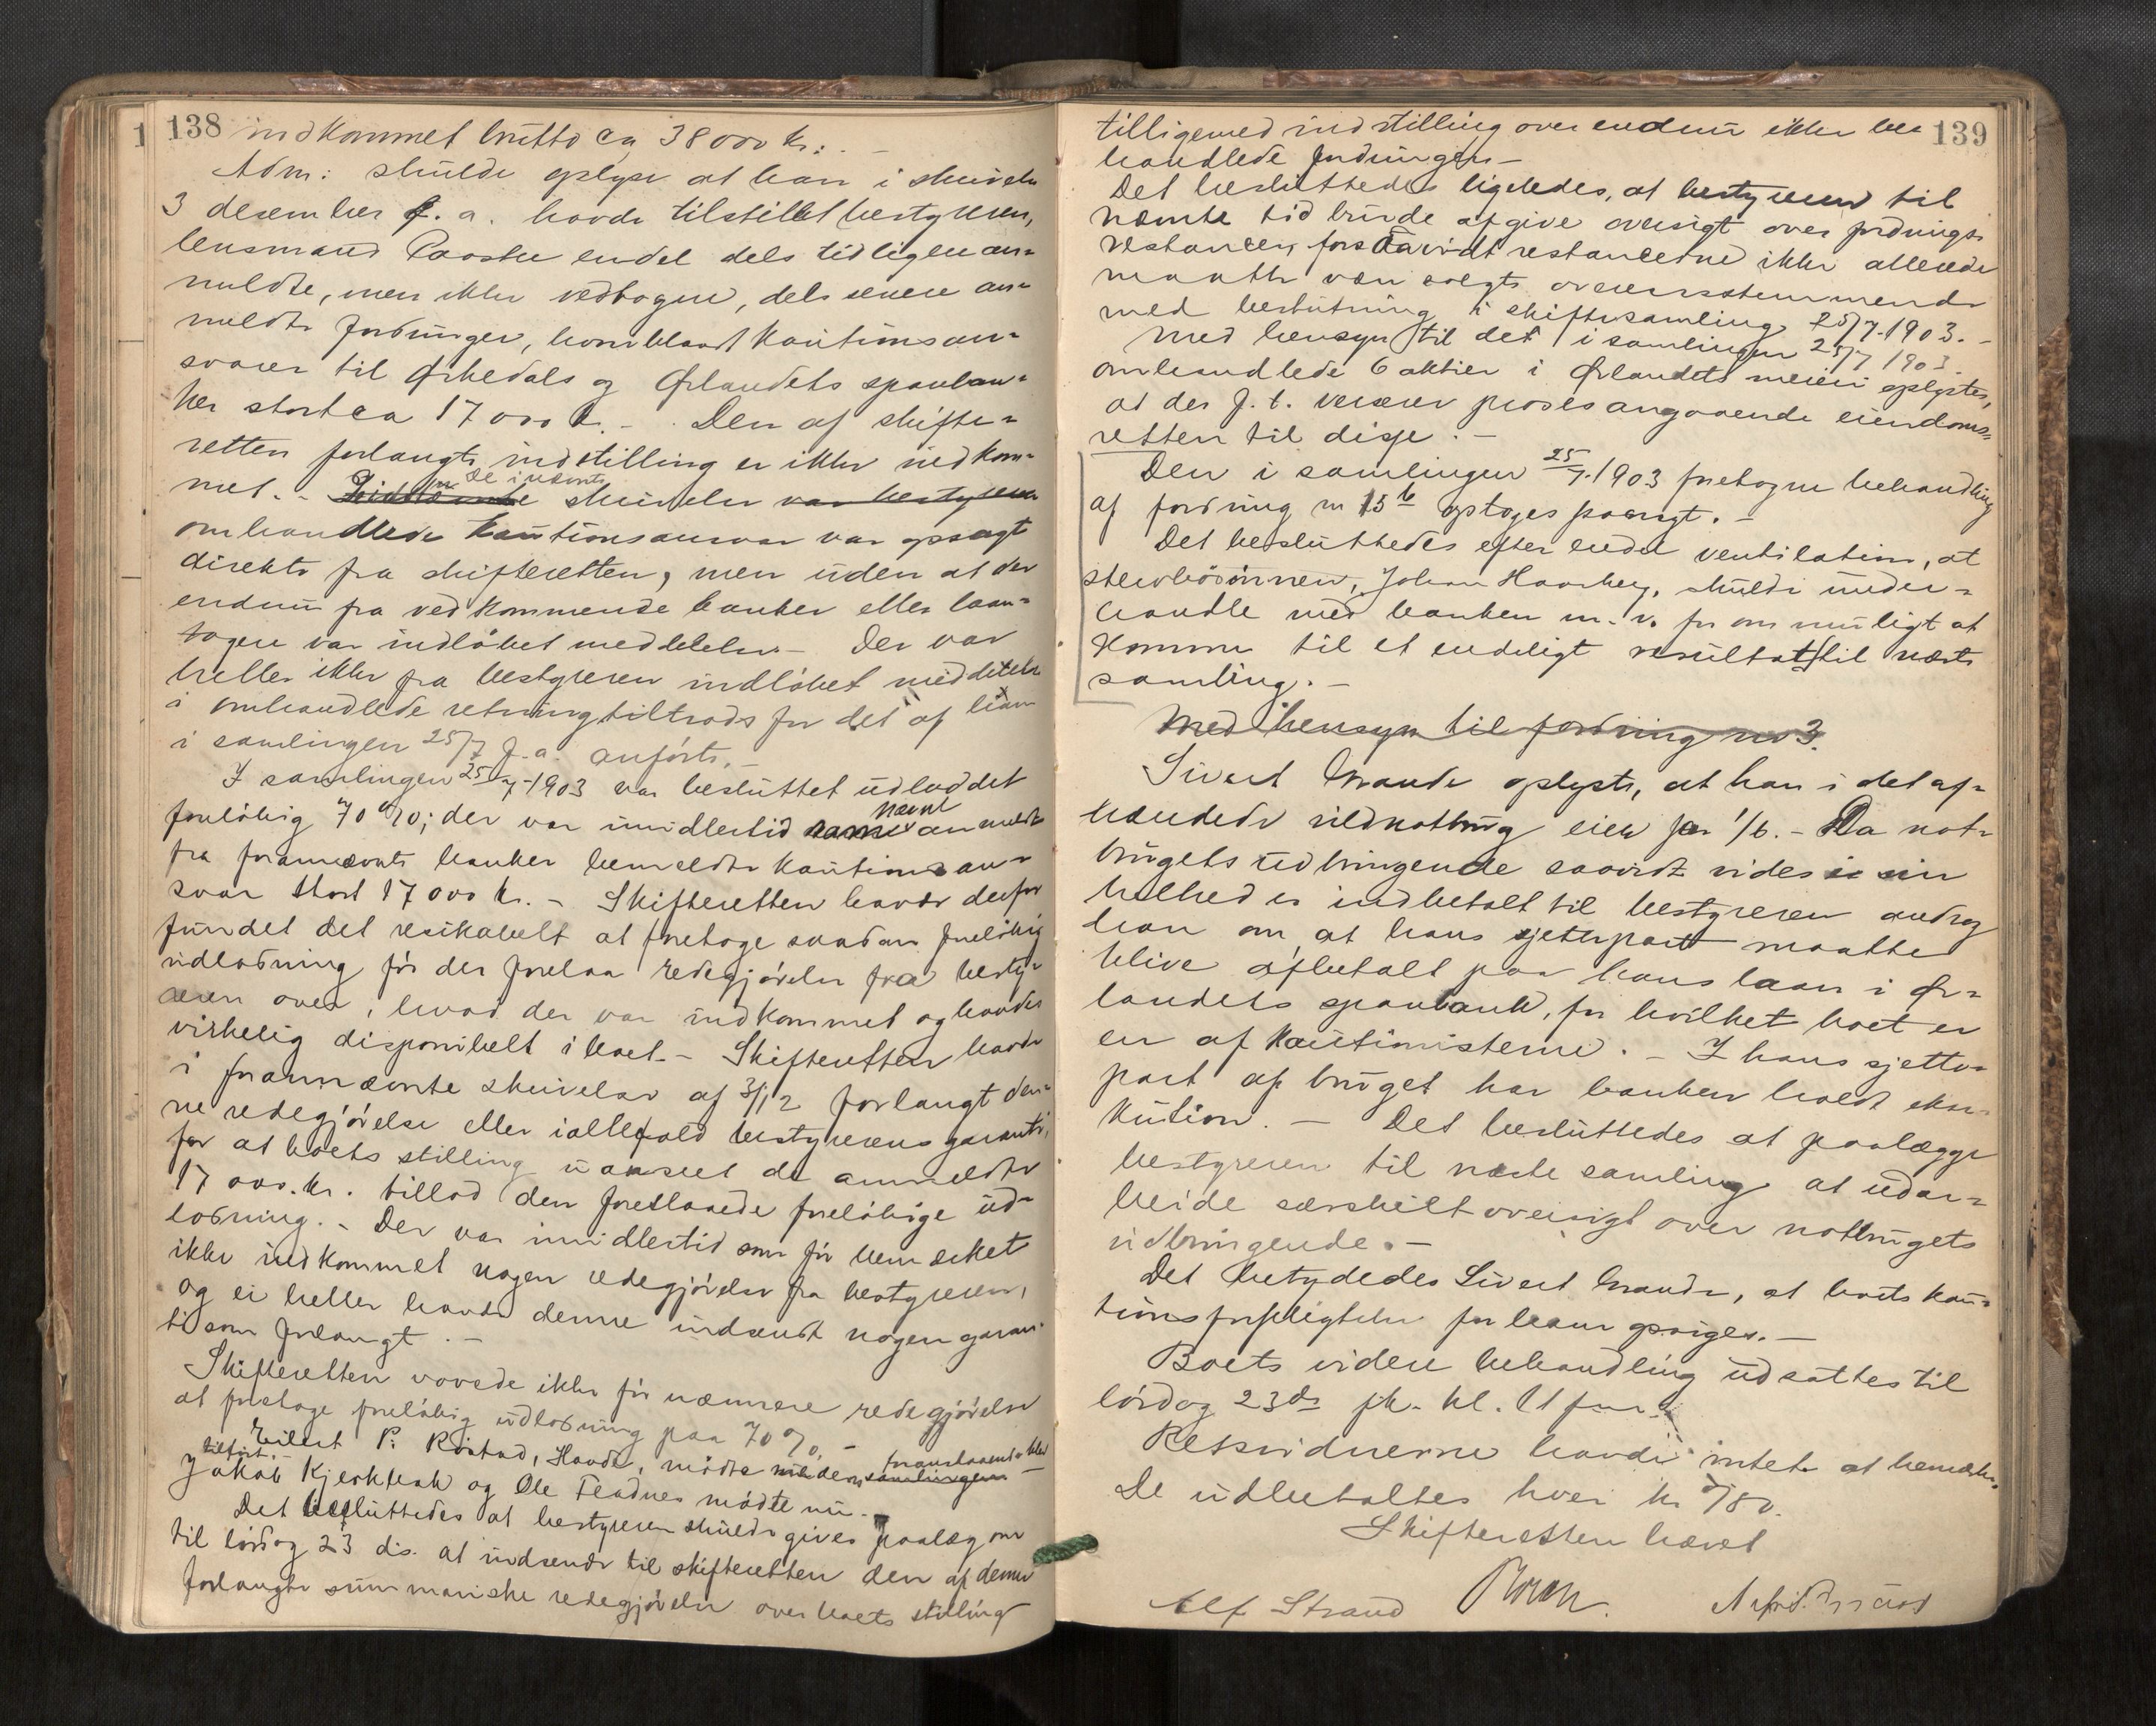 138
indkommet brutto ca 38000 kr. –
Adm: skulde oplyse at han i skrivelse
3 desember f. a. havde tilstillet bestyreren,
lensmand Paaske endel dels tidligere an-
meldte, men ikke vedtagne, dels senere an-
meldte fordringer, hvoriblandt kautionsan-
svarer til Ørkedals og Ørlandets spareban-
ker stort ca 17000 kr. – Den af skifte-
retten forlangte indstilling er ikke indkom-
met. – De i nævnte skrivelse var bestyreren
omhandlede kautionsansvar var opsagt
direkte fra skifteretten, men uden at der
endnu fra vedkommende banker eller laan-
tagere var indløbet meddelelse. – Der var
heller ikke fra bestyreren indløbet meddelelse
i omhandlede retning tiltrods for det af ham
i samlingen 25/7 f. a. anførte. –
I samlingen 25/7 1903 var besluttet udloddet
foreløbig 70 %; der var imidlertid nævnt anmeldt
fra forannævnte banker bemeldte kautionsan-
svar stort 17000 kr. – Skifteretten havde derfor
fundet det resikabelt at foretage saadan foreløbig
udlodning før der forelaa redegjørelse fra besty-
reren over, hvad der var indkommet og havdes
virkelig disponibelt i boet. – Skifteretten havde
i forannævnte skrivelse af 3/12 forlangt den-
ne redegjørelse eller ialfald bestyrerens garanti
for at boets stilling uanseet de anmeldte
17000 kr. tillod den foreslaaede foreløbige ud-
lodning. – Der var imidlertid som før bemerket
ikke indkommet nogen redegjørelse fra bestyreren,
og ei heller havde denne indsendt nogen garan-
ti som forlangt. –
Skifteretten vovede ikke før nærmere redegjørelse
at foretage foreløbig udlodning paa 70 %. –
Eilert P. Røstad, Hovde, mødte under samlingen
Jakob Kjerkbak og Ole Fladnes mødte nu. –
Det besluttedes at bestyreren skulde gives paalæg om
til lørdag 23 ds. at indsende til skifteretten den af denne
forlangte summariske redegjørelse over boets stilling
139
tilligemed indstilling over endnu ikke be-
handlede fordringer –
Det besluttedes ligeledes, at bestyreren til
nævnte tid burde afgive oversigt over fordrings-
restancer, forsaavidt restancerne ikke allerede
maatte være solgte overensstemmende
med beslutning i skiftesamling 25/7 1903. –
Med hensyn til det i samlingen 25/7 1903
omhandlede 6 aktier i Ørlandets meieri oplystes,
at der f. t. verserer proses angaaende eiendoms-
retten til disse. –
Den i samlingen 25/7 1903 foretagne behandling
af fordring nr 15 b optoges paanyt. –
Det besluttedes efter endel ventilation, at
stervbøsønnen, Johan Haarberg, skulde under-
handle med banken m. v. for om muligt at
komme til et endeligt resultat til næste
samling. –
Med hensyn til fordring no 3.
Sivert Grande oplyste, at han i det af-
hændede sildnotbrug eier for 1/6. – Da not-
brugets udbringende saavidt vides i sin
helhed er indbetalt til bestyreren androg
han om, at hans sjettepart maatte
blive afbetalt paa hans laan i Ør-
landets sparebank, for hvilket boet er
en af kautionisterne. – I hans sjette-
part af bruget har banken holdt ekse-
kution. – Det besluttedes at paalægge
bestyreren til næste samling at udar-
beide særskilt oversigt over notbrugets
udbringende. –
Det betydedes Sivert Grande, at boets kau-
tionsforpligtelse for ham opsiges. –
Boets videre behandling udsattes til
lørdag 23de ds. kl. 11 form.
Retsvidnerne havde intet at bemærke.
De udbetaltes hver kr 0/80.
Skifteretten hævet
Alf Strand